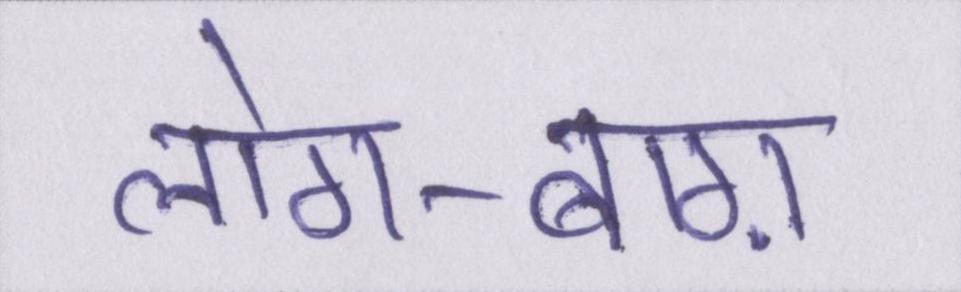 लोग-बाग़